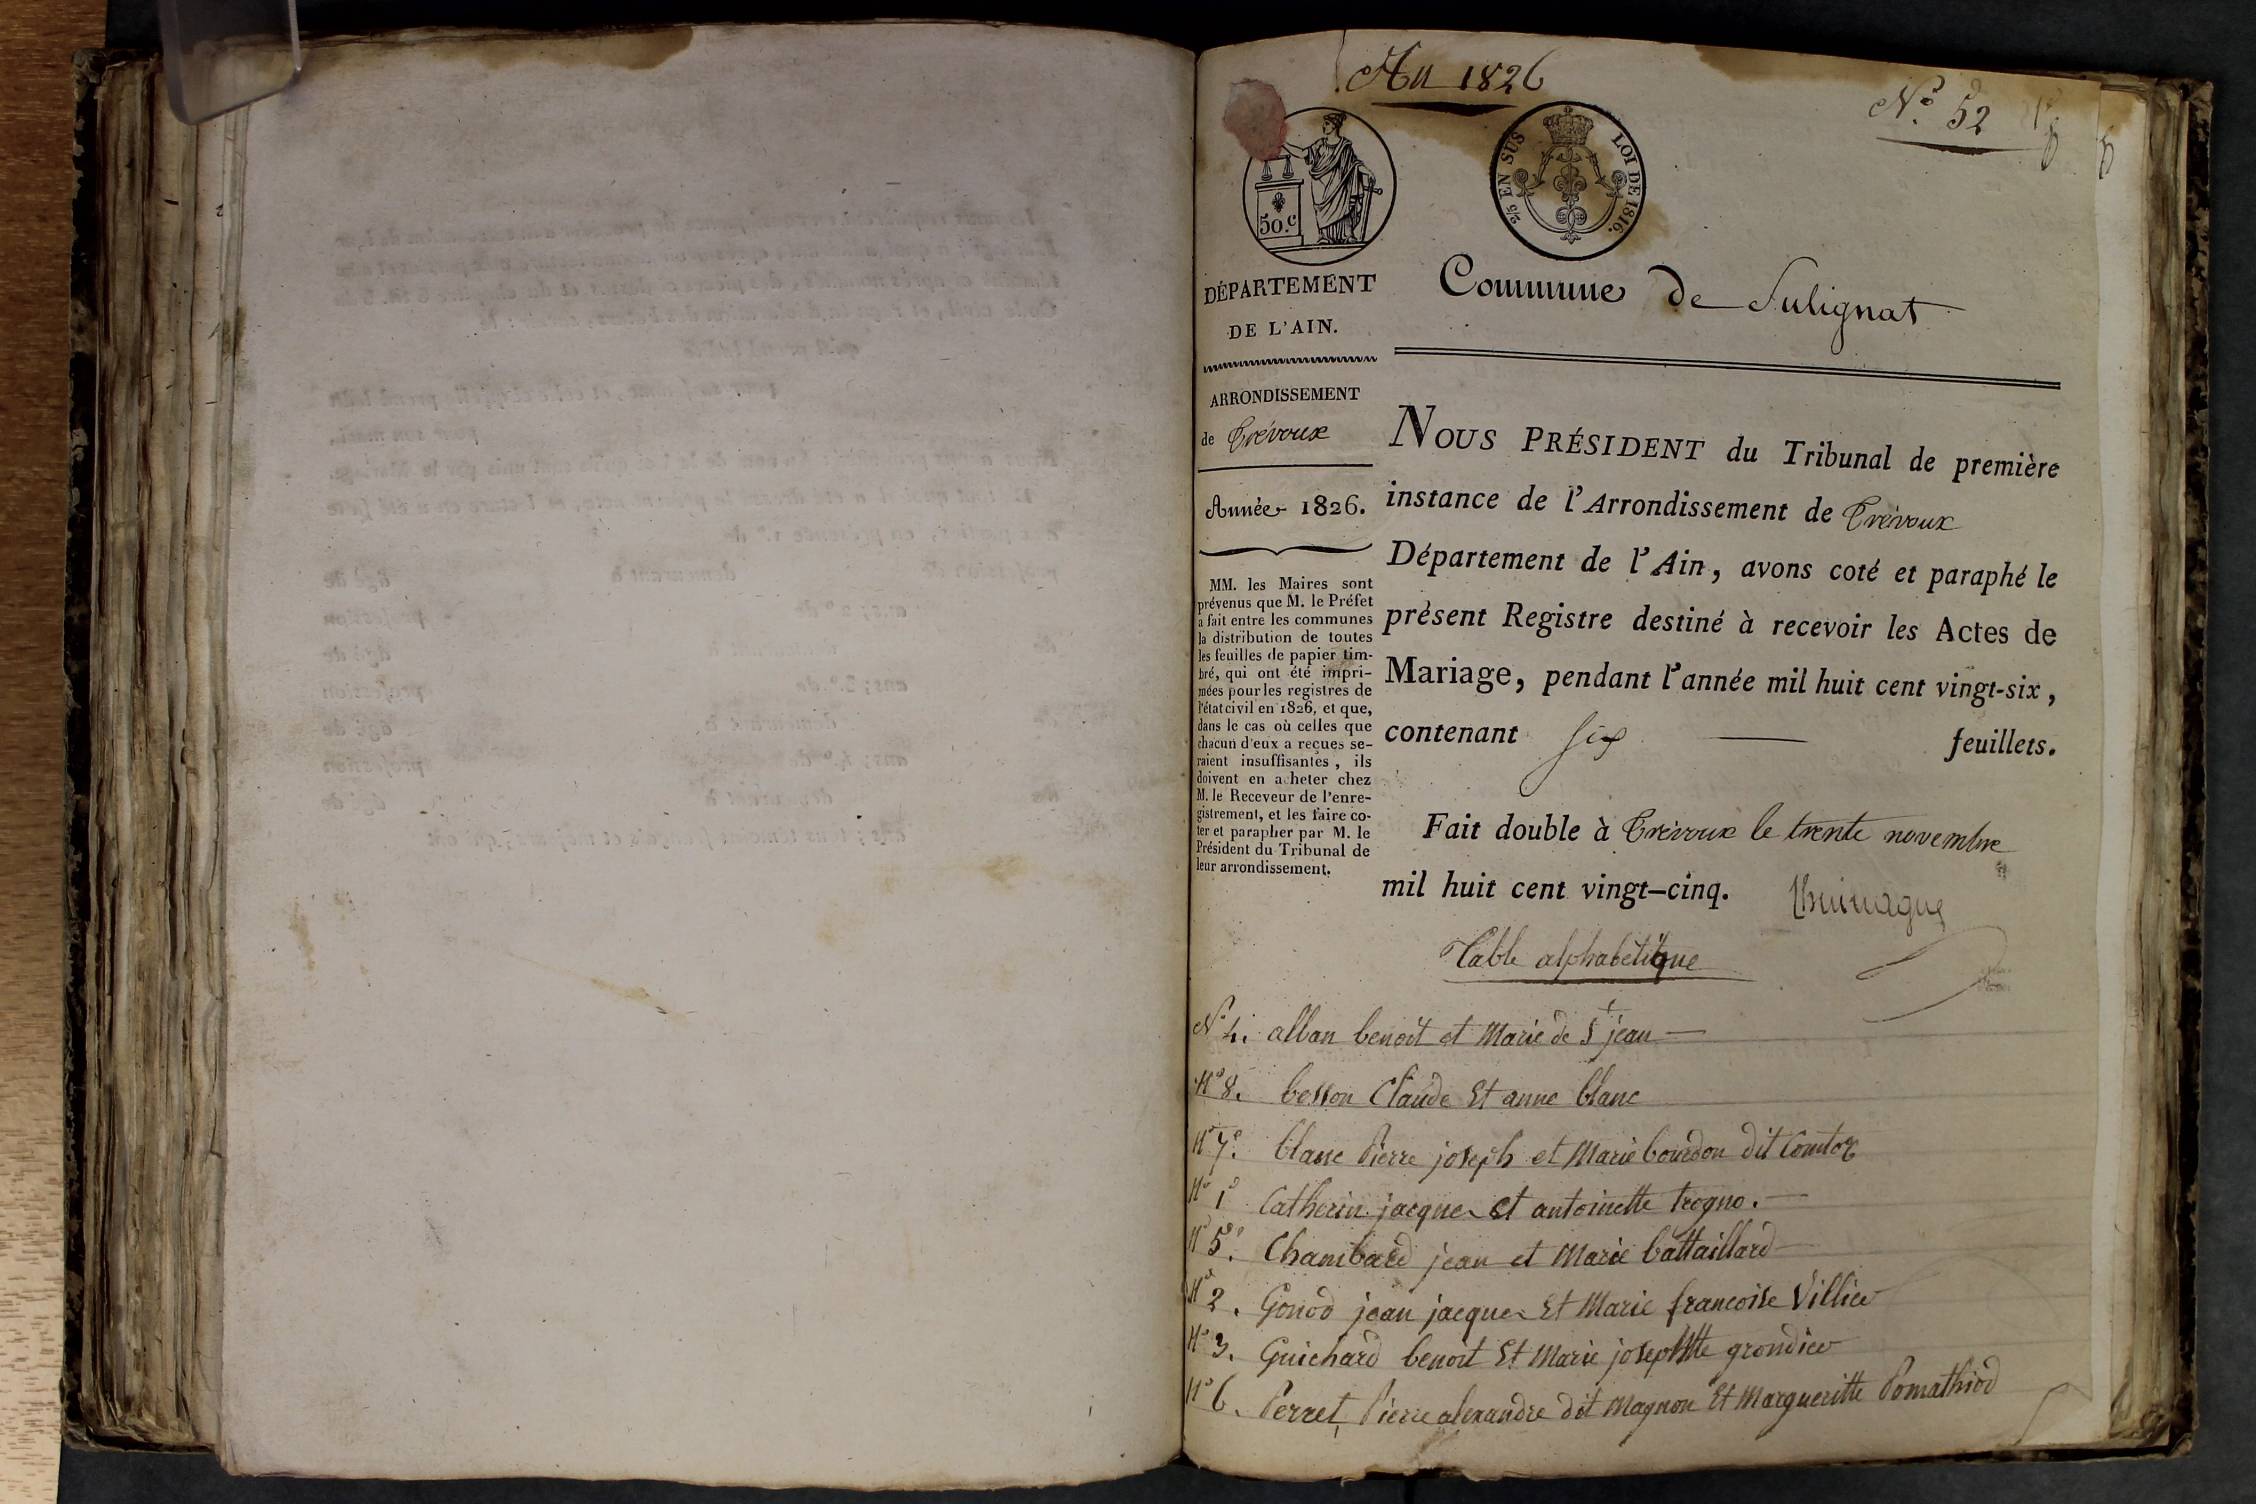 An 1826
N.º 52
50.c
2/5 EN SUS
LOI DE 1816.
DÉPARTEMENT
DE L'AIN.
ARRONDISSEMENT
de Trévoux
Année 1826.
MM. les Maires sont
prévenus que M. le Préfet
a fait entre les communes
la distribution de toutes
les feuilles de papier tim-
bré, qui ont été impri-
mées pour les registres de
l'état civil en 1826, et que,
dans le cas où celles que
chacun d'eux a reçues se-
raient insuffisantes, ils
doivent en acheter chez
M. le Receveur de l'enre-
gistrement, et les faire co-
ter et parapher par M. le
Président du Tribunal de
leur arrondissement.
Commune de Sulignat
NOUS PRÉSIDENT du Tribunal de première
instance de l'Arrondissement de Trévoux
Département de l'Ain, avons coté et paraphé le
présent Registre destiné à recevoir les Actes de
Mariage, pendant l'année mil huit cent vingt-six,
contenant six feuillets.
Fait double à Trévoux le trente novembre
mil huit cent vingt-cinq.
Table alphabetique
Nº 4. alban benoit et Marie de St jean
Nº 8. besson Claude Et anne blanc
Nº 7º. blanc Pierre joseph et Marie bourdon dit Comtox
Nº 1º Catherin jacques et antoinette trogno.
Nº 5º. Chambard jean et Marie battaillard
Nº 2. Gonod jean jacques Et Marie francoise Villier
Nº 3. Guichard benoit Et Marie josephtte grondier
Nº 6. Perret Pierre alexandre dit Magnon Et Margueritte Pomathiod